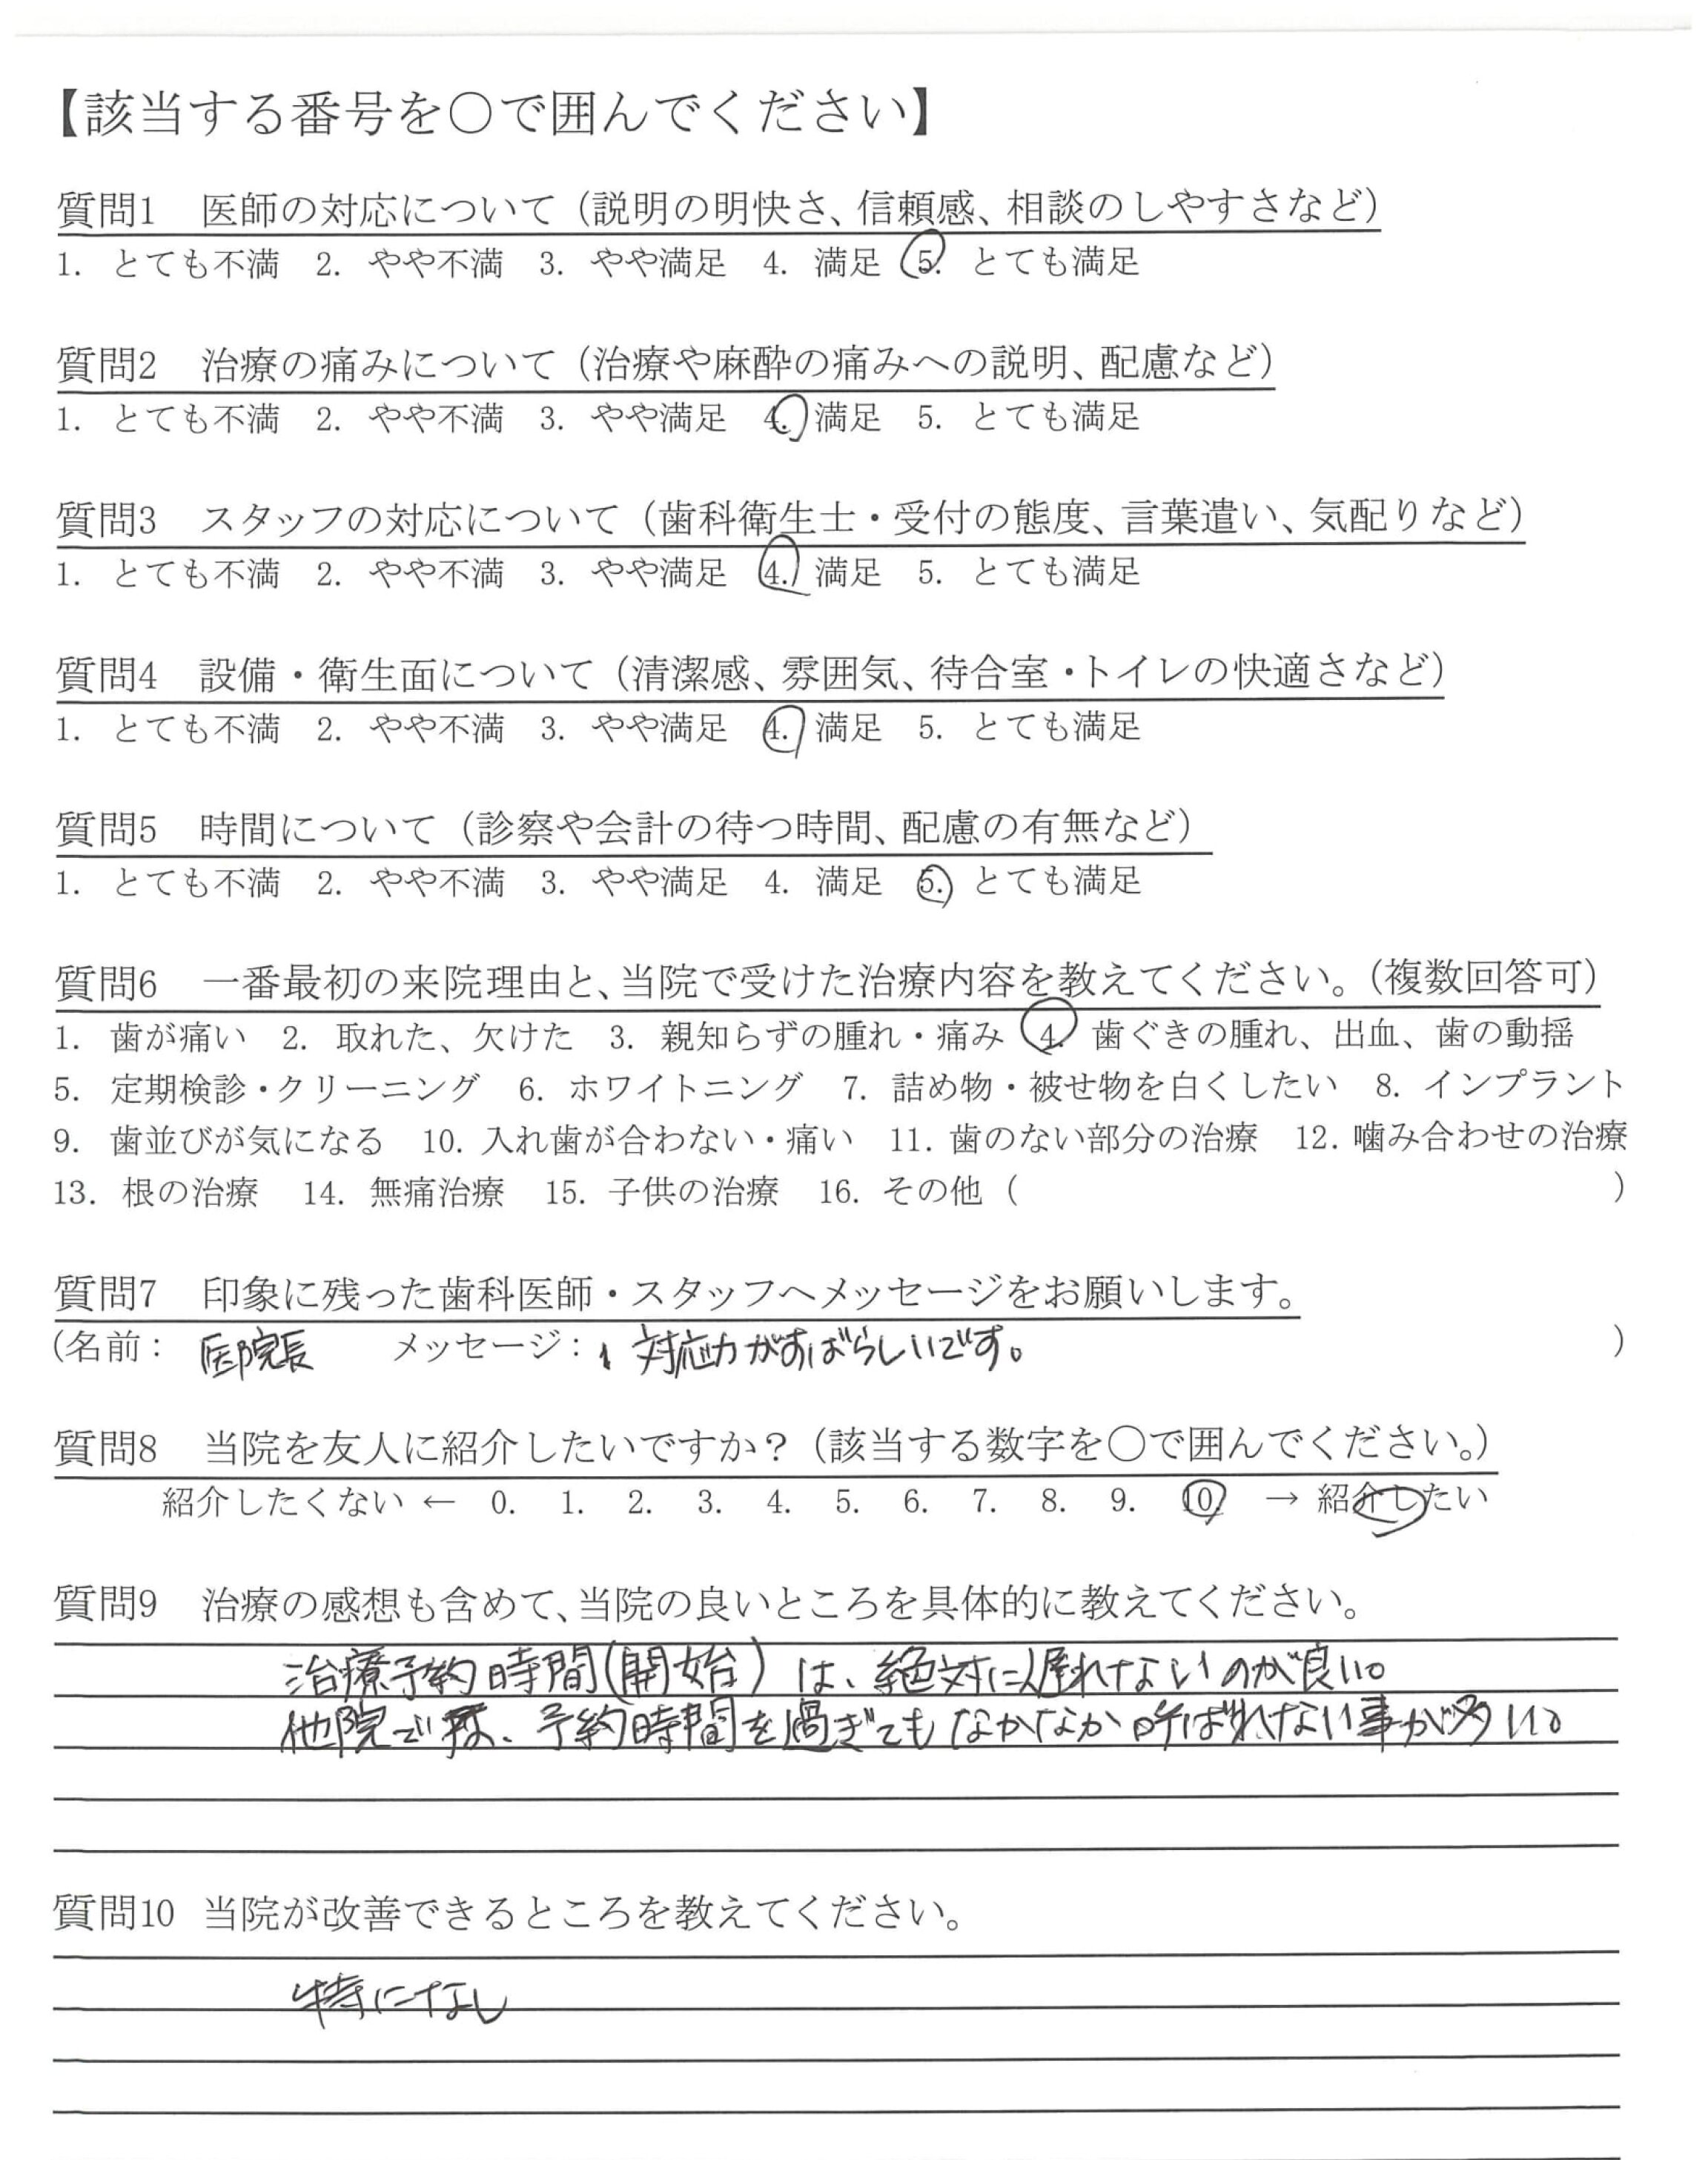 【該当する番号を○で囲んでください】
質問1 医師の対応について（説明の明快さ、信頼感、相談のしやすさなど）
1. とても不満 2. やや不満 3. やや満足 4. 満足 5. とても満足
質問2 治療の痛みについて（治療や麻酔の痛みへの説明、配慮など）
1. とても不満 2. やや不満 3. やや満足 4. 満足 5. とても満足
質問3 スタッフの対応について（歯科衛生士・受付の態度、言葉遣い、気配りなど）
1. とても不満 2. やや不満 3. やや満足 4. 満足 5. とても満足
質問4 設備・衛生面について（清潔感、雰囲気、待合室・トイレの快適さなど）
1. とても不満 2. やや不満 3. やや満足 4. 満足 5. とても満足
質問5 時間について（診察や会計の待つ時間、配慮の有無など）
1. とても不満 2. やや不満 3. やや満足 4. 満足 5. とても満足
質問6 一番最初の来院理由と、当院で受けた治療内容を教えてください。（複数回答可）
1. 歯が痛い 2. 取れた、欠けた 3. 親知らずの腫れ・痛み 4. 歯ぐきの腫れ、出血、歯の動揺
5. 定期検診・クリーニング 6. ホワイトニング 7. 詰め物・被せ物を白くしたい 8. インプラント
9. 歯並びが気になる 10. 入れ歯が合わない・痛い 11. 歯のない部分の治療 12. 噛み合わせの治療
13. 根の治療 14. 無痛治療 15. 子供の治療 16. その他（ ）
質問7 印象に残った歯科医師・スタッフへメッセージをお願いします。
（名前： 医院長 メッセージ： 対応力がすばらしいです。 ）
質問8 当院を友人に紹介したいですか？（該当する数字を○で囲んでください。）
紹介したくない ← 0. 1. 2. 3. 4. 5. 6. 7. 8. 9. 10. → 紹介したい
質問9 治療の感想も含めて、当院の良いところを具体的に教えてください。
治療予約時間（開始）は、絶対に遅れないのが良い。
他院では、予約時間を過ぎてもなかなか呼ばれない事が多い。
質問10 当院が改善できるところを教えてください。
特になし